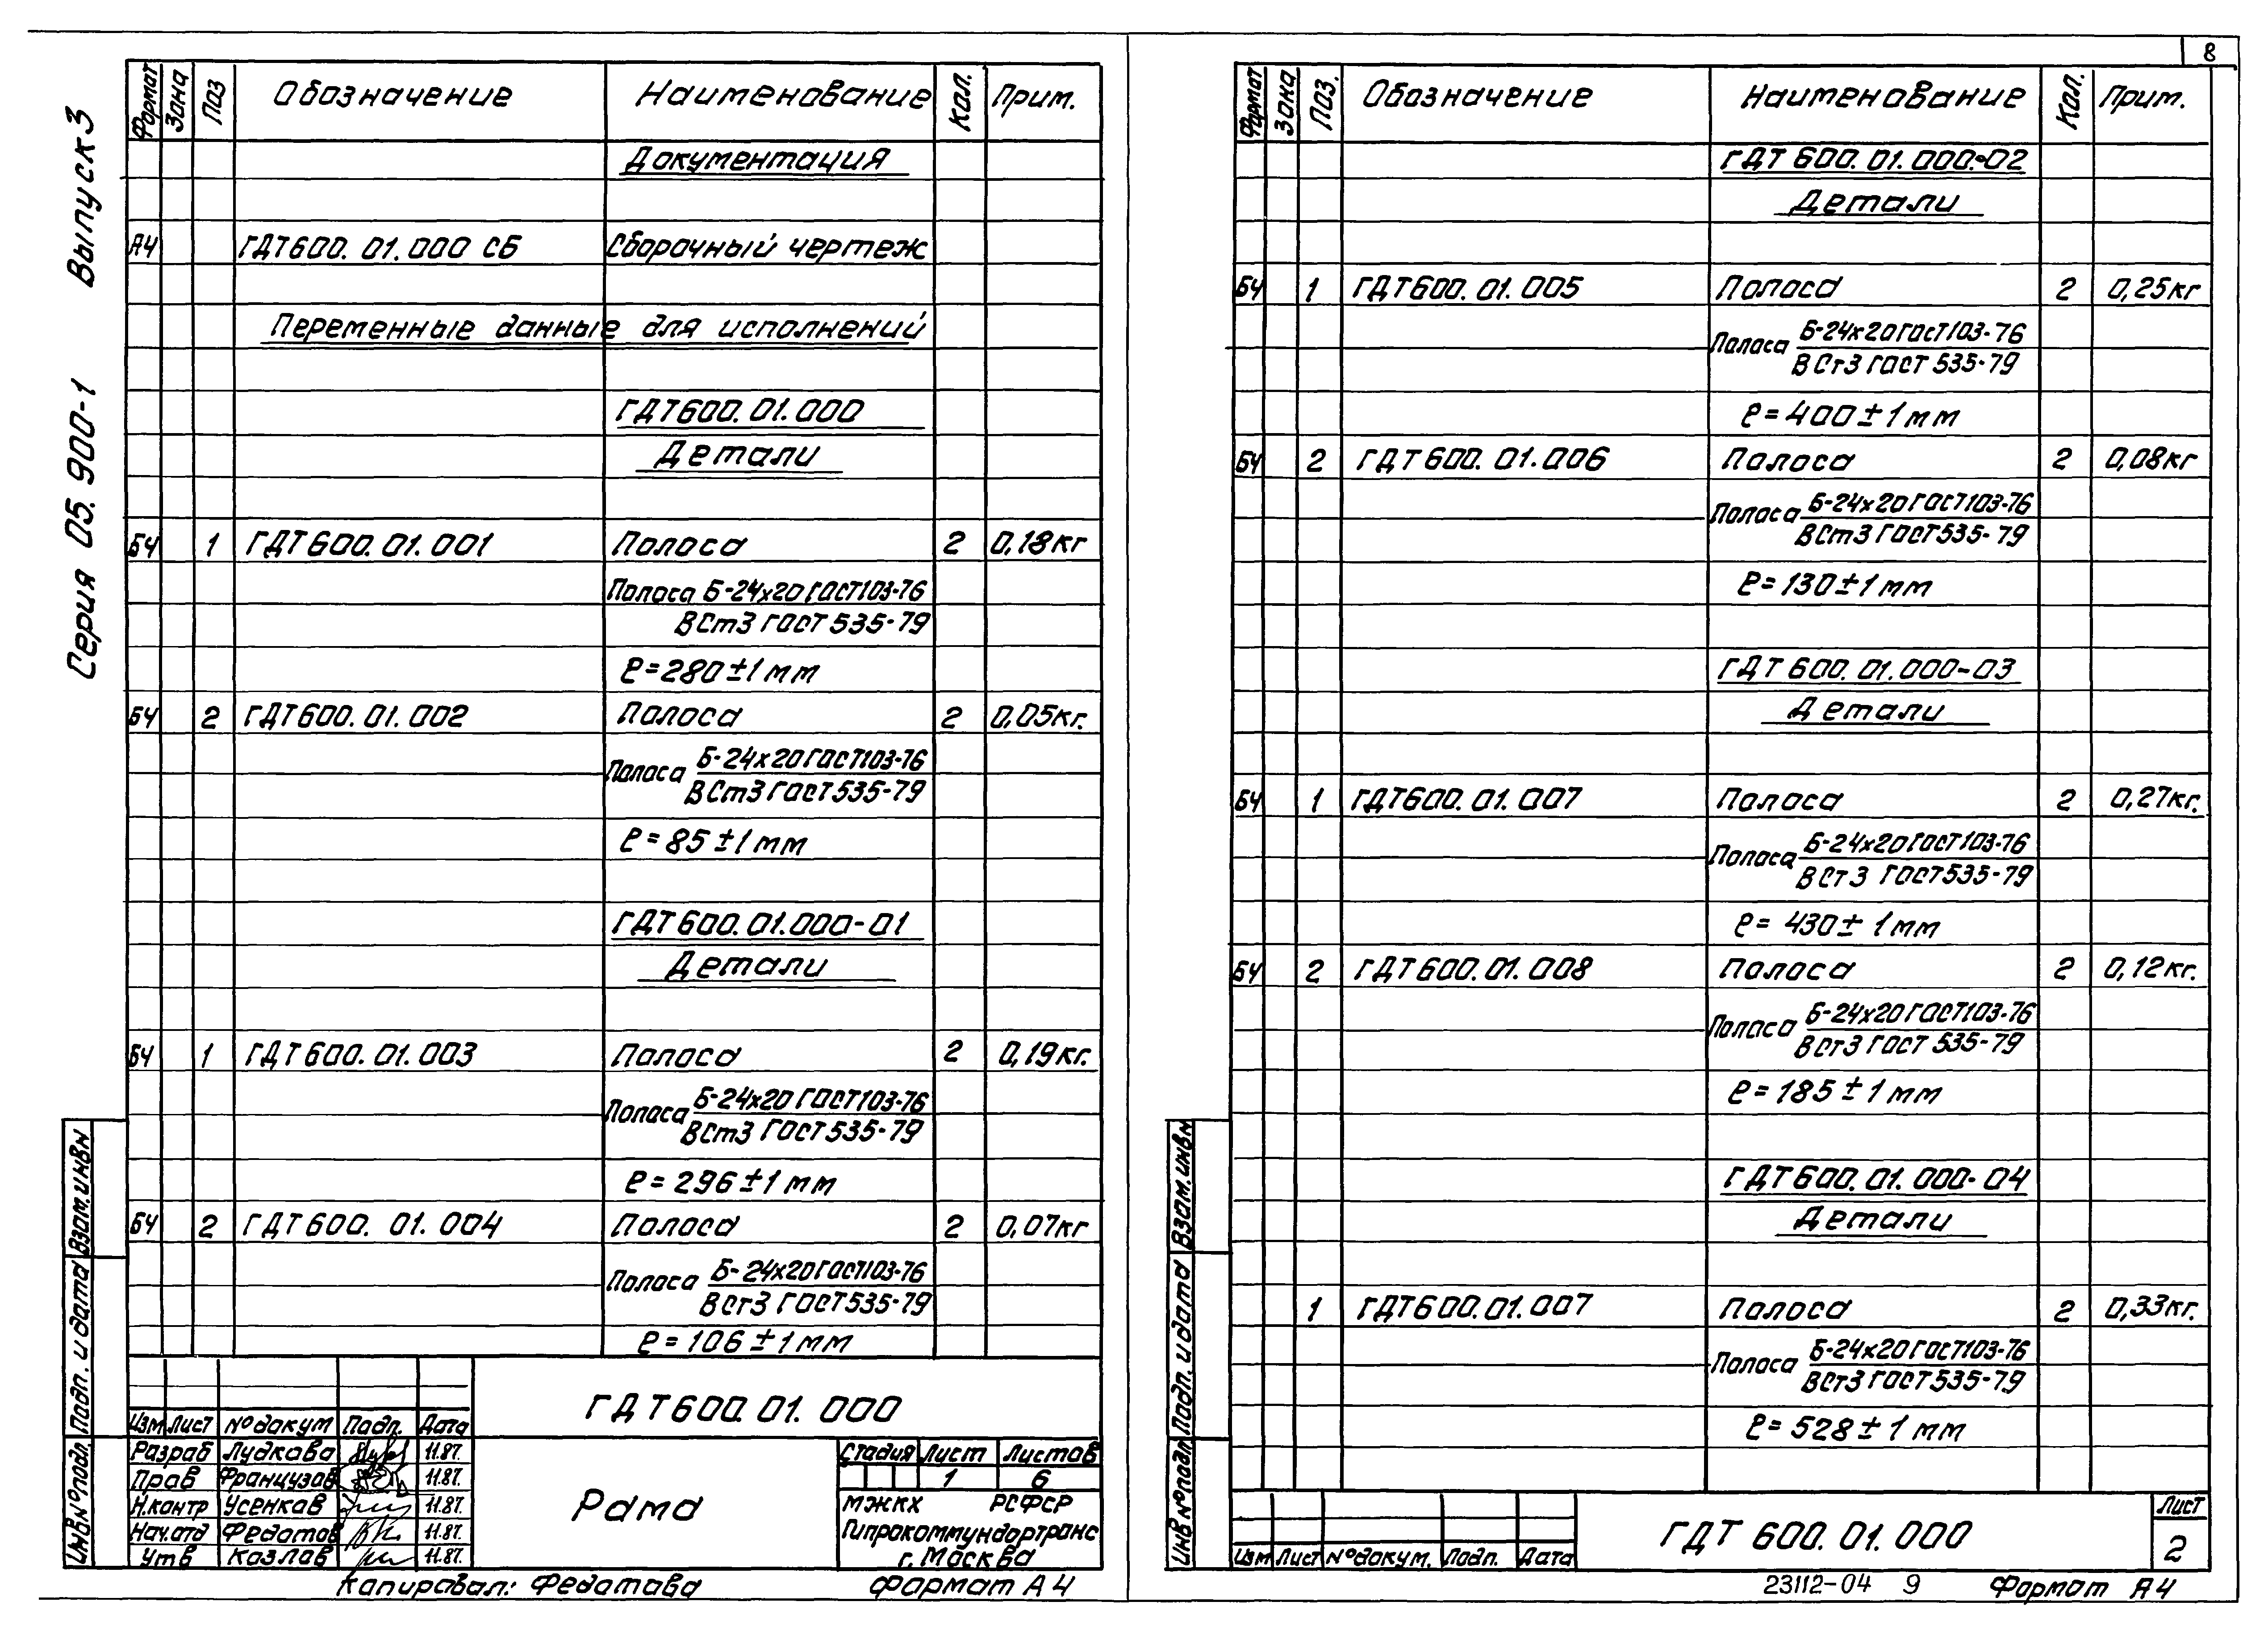 Серия 05.900-1 Выпуск 3
Формат Зона Поз Обозначение Наименование Кол. Прим.
Документация
А4 ГДТ600.01.000 СБ Сборочный чертеж
Переменные данные для исполнений
ГДТ600.01.000
Детали
БЧ 1 ГДТ600.01.001 Полоса 2 0,18кг
Полоса Б-24х20 ГОСТ103-76
ВСт3 ГОСТ 535-79
ℓ=280±1мм
БЧ 2 ГДТ600.01.002 Полоса 2 0,05кг.
Полоса Б-24х20 ГОСТ103-76
ВСт3 ГОСТ 535-79
ℓ=85±1мм
ГДТ600.01.000-01
Детали
БЧ 1 ГДТ600.01.003 Полоса 2 0,19кг.
Полоса Б-24х20 ГОСТ103-76
ВСт3 ГОСТ 535-79
ℓ=296±1мм
БЧ 2 ГДТ600.01.004 Полоса 2 0,07кг
Полоса Б-24х20 ГОСТ103-76
ВСт3 ГОСТ 535-79
ℓ=106±1мм
Взам.инв№
Подп. и дата
Инв№подл.
ГДТ600.01.000
Изм Лист №докум Подп. Дата
Разраб Лудкова 11.87.
Пров Французов 11.87.
Н.контр Усенков 11.87.
Нач.отд Федотов 11.87.
Утв Козлов 11.87.
Рама
Стадия Лист Листов
1 6
МЖКХ РСФСР
Гипрокоммундортранс
г. Москва
Копировал: Федотова Формат А4
8
Формат Зона Поз. Обозначение Наименование Кол. Прим.
ГДТ600.01.000-02
Детали
БЧ 1 ГДТ600.01.005 Полоса 2 0,25кг
Полоса Б-24х20 ГОСТ103-76
ВСт3 ГОСТ 535-79
ℓ=400±1мм
БЧ 2 ГДТ600.01.006 Полоса 2 0,08кг
Полоса Б-24х20 ГОСТ103-76
ВСт3 ГОСТ535-79
ℓ=130±1мм
ГДТ600.01.000-03
Детали
БЧ 1 ГДТ600.01.007 Полоса 2 0,27кг.
Полоса Б-24х20 ГОСТ103-76
ВСт3 ГОСТ535-79
ℓ=430±1мм
БЧ 2 ГДТ600.01.008 Полоса 2 0,12кг.
Полоса Б-24х20 ГОСТ103-76
ВСт3 ГОСТ 535-79
ℓ=185±1мм
ГДТ600.01.000-04
Детали
1 ГДТ600.01.007 Полоса 2 0,33кг.
Полоса Б-24х20 ГОСТ103-76
ВСт3 ГОСТ535-79
ℓ=528±1мм
Взам.инв№
Подп. и дата
Инв№подл
Изм Лист №докум. Подп. Дата
ГДТ 600.01.000
Лист
2
23112-04 9 Формат А4